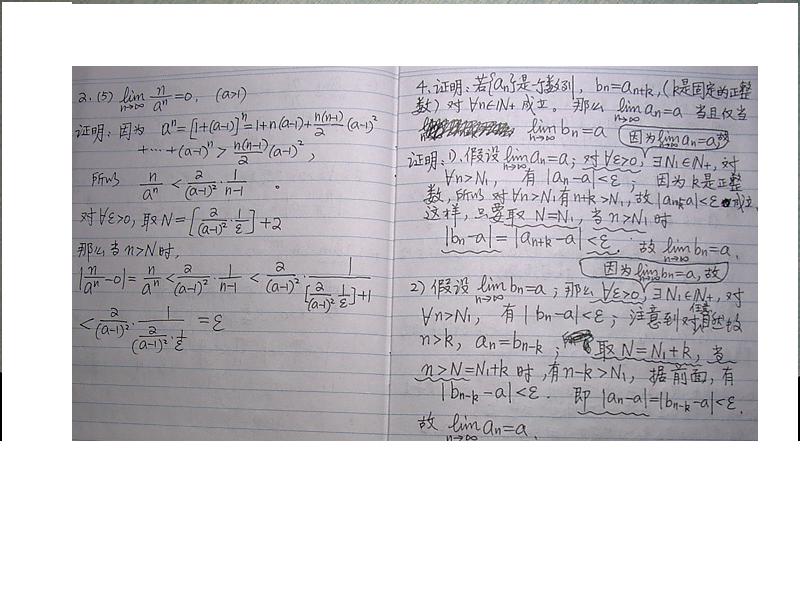 2. (5) lim n→∞ n/aⁿ = 0, (a>1)
证明: 因为 aⁿ = [1+(a-1)]ⁿ = 1+n(a-1)+n(n-1)/2 (a-1)²
+⋯+(a-1)ⁿ > n(n-1)/2 (a-1)²,
所以 n/aⁿ < 2/(a-1)² · 1/(n-1) 。
对∀ε>0, 取 N = [2/(a-1)² · 1/ε] + 2
那么当 n>N 时,
|n/aⁿ - 0| = n/aⁿ < 2/(a-1)² · 1/(n-1) < 2/(a-1)² · 1/([2/(a-1)² · 1/ε]+1)
< 2/(a-1)² · 1/(2/(a-1)² · 1/ε) = ε
4. 证明: 若{aₙ}是一个数列, bₙ=aₙ₊ₖ, (k是固定的正整
数) 对 ∀n∈ℕ₊ 成立。那么 lim n→∞ aₙ=a 当且仅当
lim n→∞ bₙ=a 因为 lim n→∞ aₙ=a, 故
证明: 1). 假设 lim n→∞ aₙ=a; 对∀ε>0, ∃N₁∈ℕ₊, 对
∀n>N₁, 有 |aₙ-a|<ε; 因为 k 是正整
数, 所以对∀n>N₁有 n+k>N₁, 故|aₙ₊ₖ-a|<ε 成立.
这样, 只要取 N=N₁, 当 n>N₁ 时
|bₙ-a| = |aₙ₊ₖ-a|<ε. 故 lim n→∞ bₙ=a.
因为 lim n→∞ bₙ=a, 故
2) 假设 lim n→∞ bₙ=a; 那么 ∀ε>0, ∃N₁∈ℕ₊, 对
∀n>N₁, 有 |bₙ-a|<ε; 注意到对任意自然数
n>k, aₙ=bₙ₋ₖ; 取 N=N₁+k, 当
n>N=N₁+k 时, 有 n-k>N₁, 据前面, 有
|bₙ₋ₖ-a|<ε. 即 |aₙ-a|=|bₙ₋ₖ-a|<ε.
故 lim n→∞ aₙ=a.